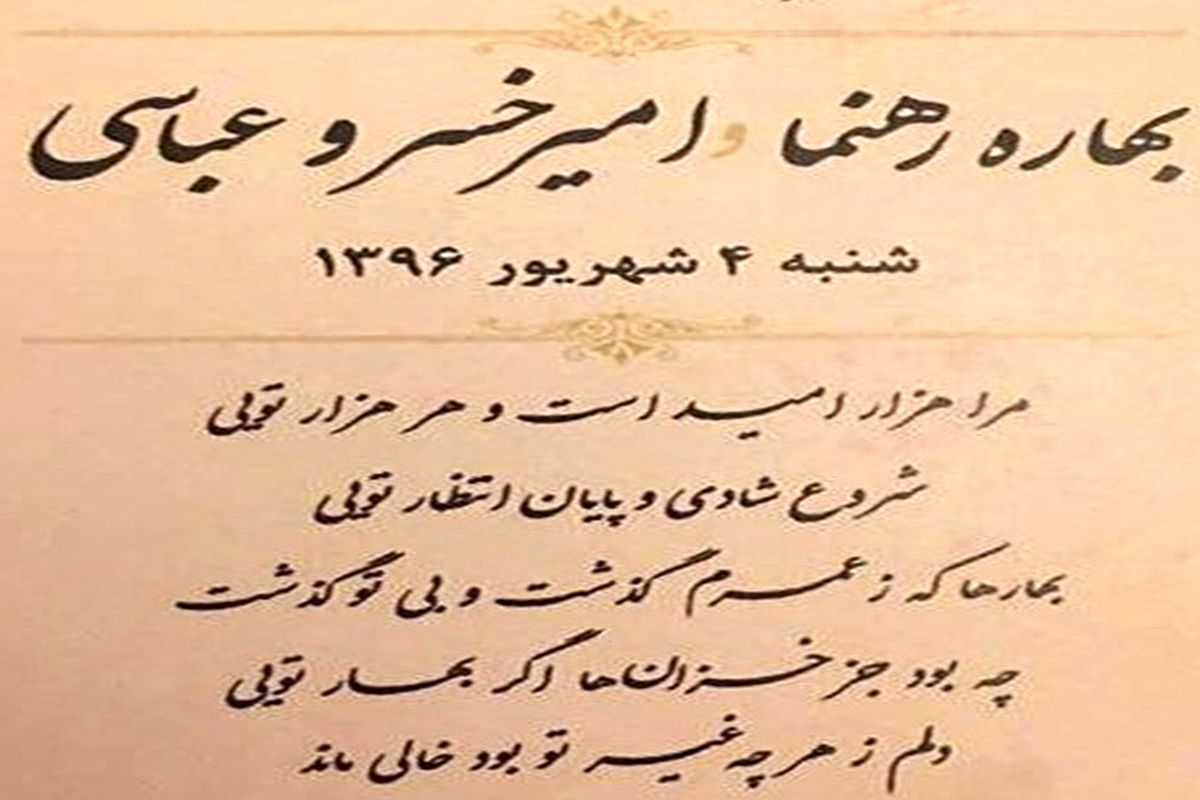 بهاره رهنما و امیرخسرو عباسی
شنبه ۴ شهریور ۱۳۹۶
مرا هزار امید است و هر هزار تویی
شروع شادی و پایان انتظار تویی
بهارها که ز عمرم گذشت و بی تو گذشت
چه بود جز خزان‌ها اگر بهار تویی
دلم ز هر چه غیر تو بود خالی ماند